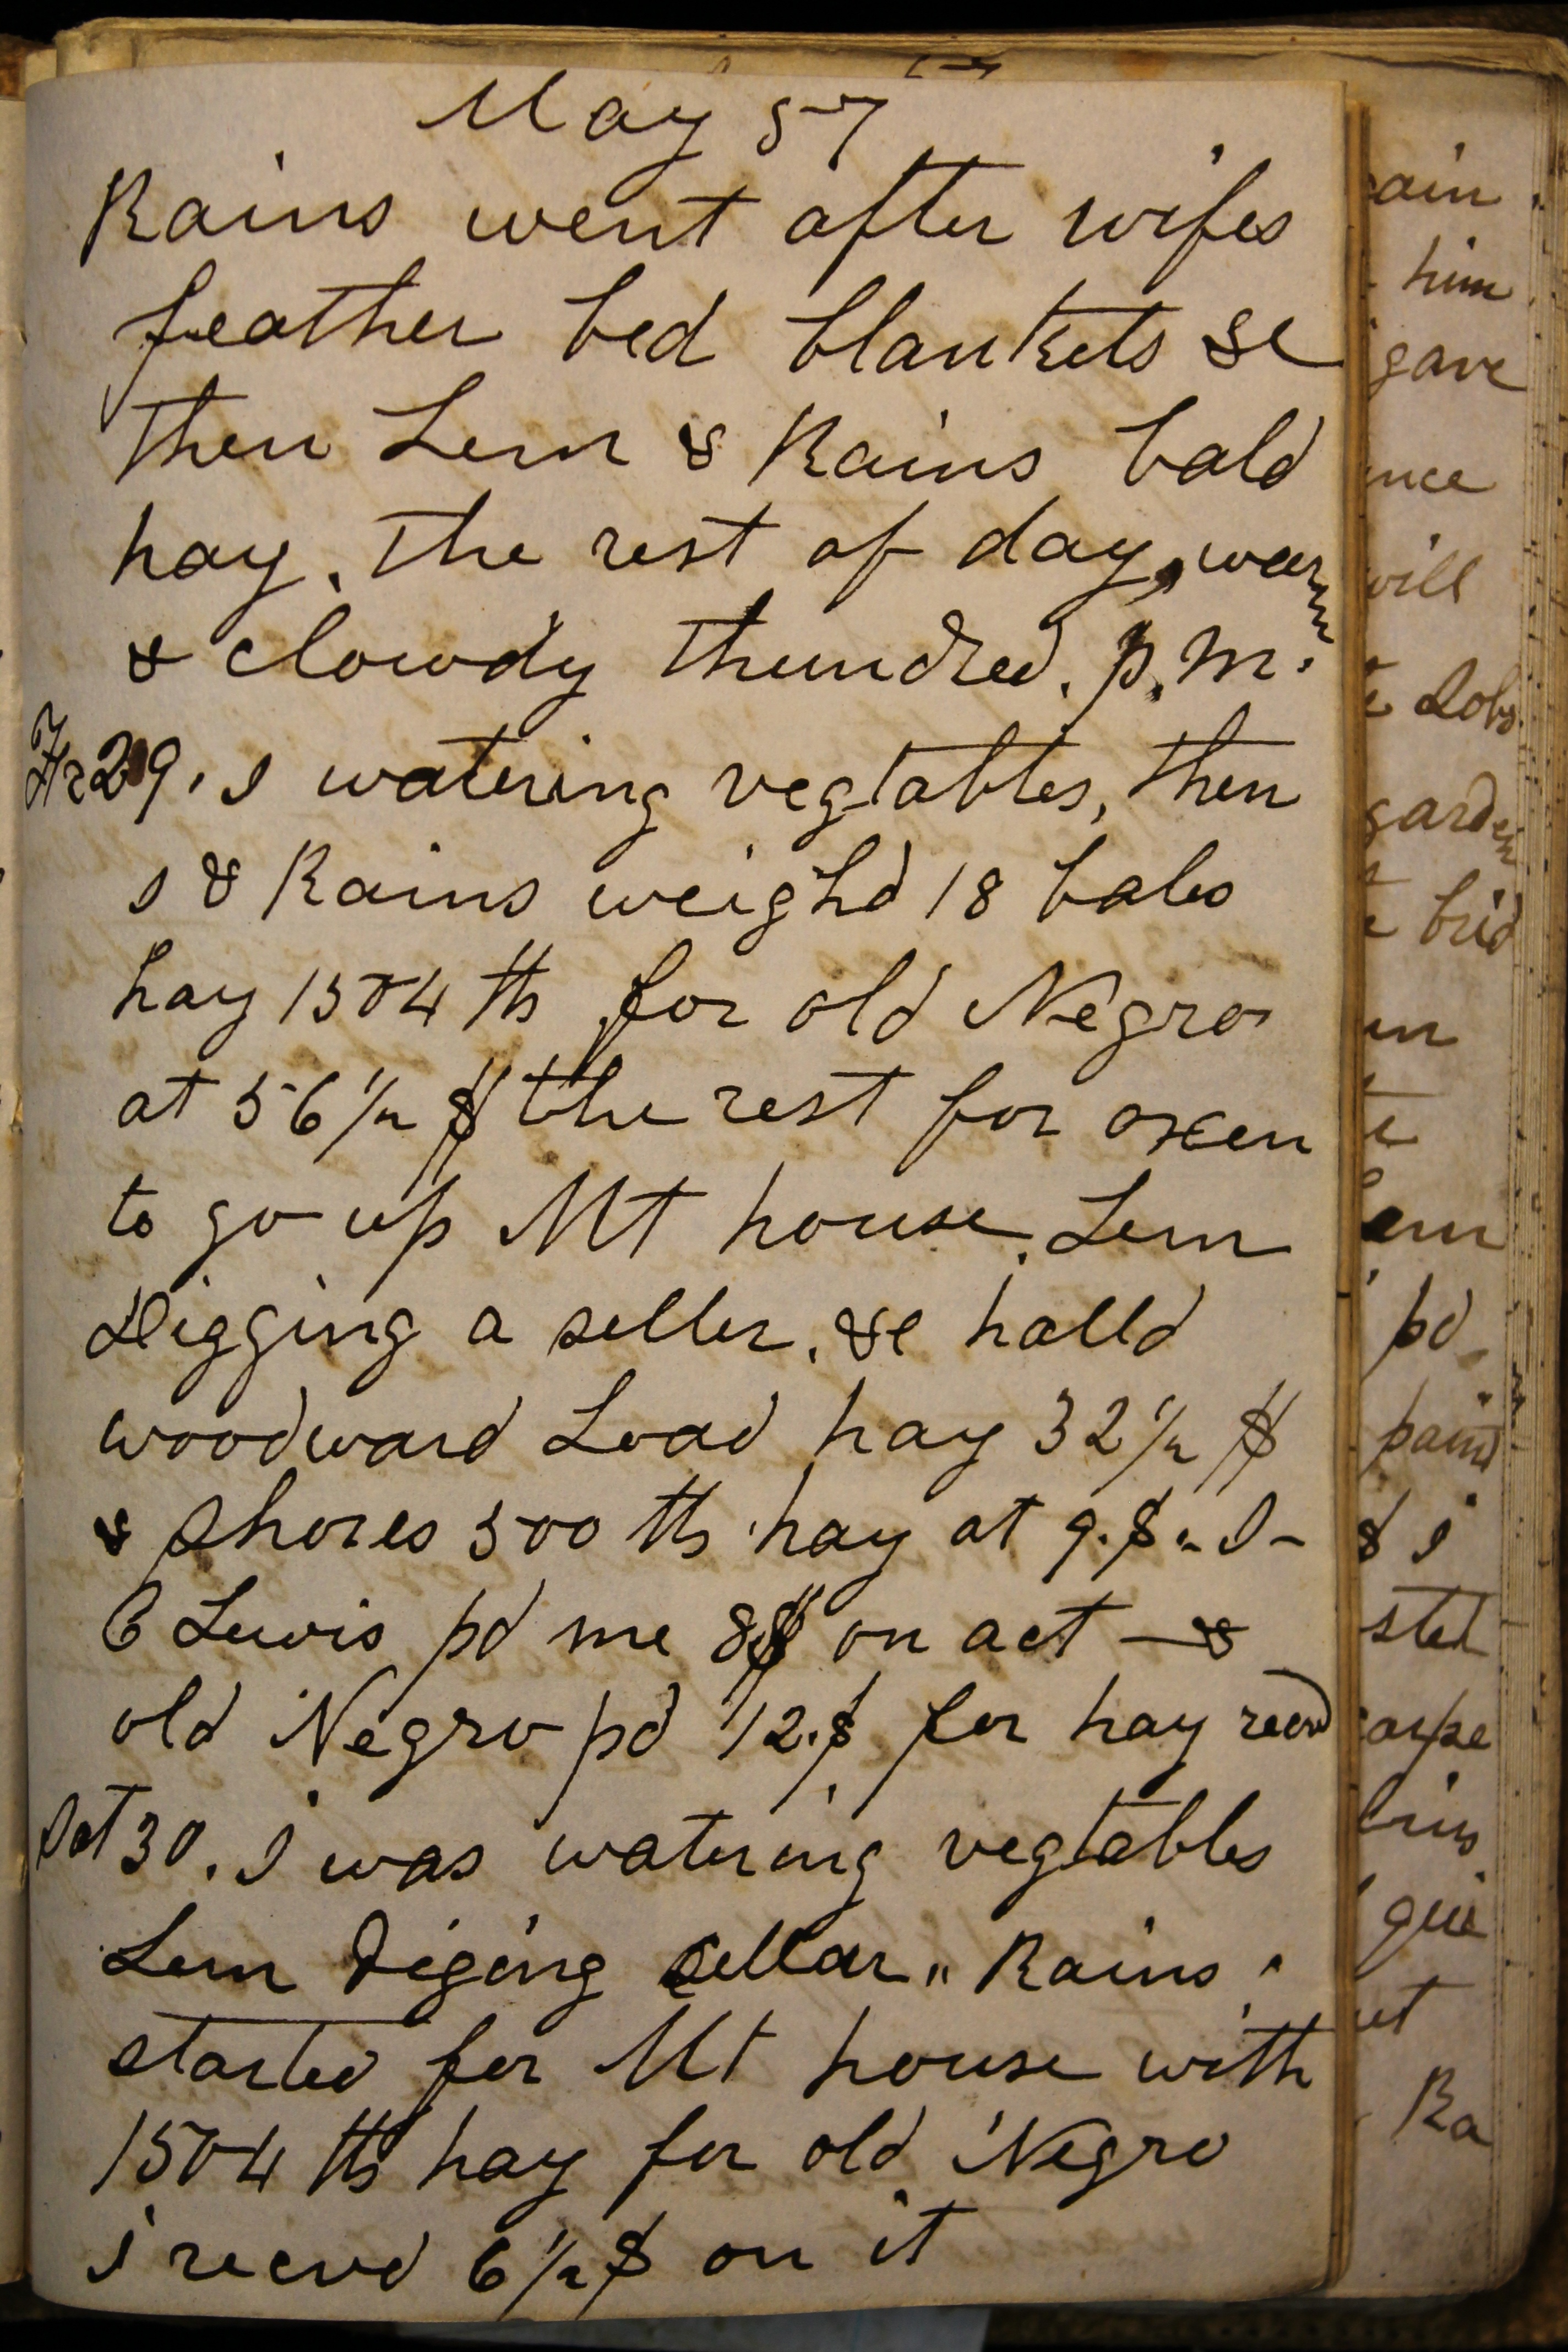 May 57
Rains went after wifes
feather bed blankets &c
then Lem & Rains bald
hay. the rest of day, warm
& clowdy thundred. p.m.
Fr 29. I watering vegtables, then
I & Rains weighd 18 bales
hay 1504 lb for old Negro
at 56 1/2 $ the rest for oxen
to go up Mt house. Lem
Digging a seller. &c halld
woodward Load hay 32 1/2 $
& Shores 500 lb hay at 9.$ - I -
C Lewis pd me 8$ on act — &
old Negro pd 12.$ for hay recvd
Sat 30. I was watering vegtables
Lem Diging Cellar " Rains
started for Mt house with
1504 lb hay for old Negro
I recevd 6 1/2 $ on it
ain
him
gave
nce
will
Lobs
garden
brid
un
te
Lem
pd
paind
& I
sted
carpe
give
ut
Ra